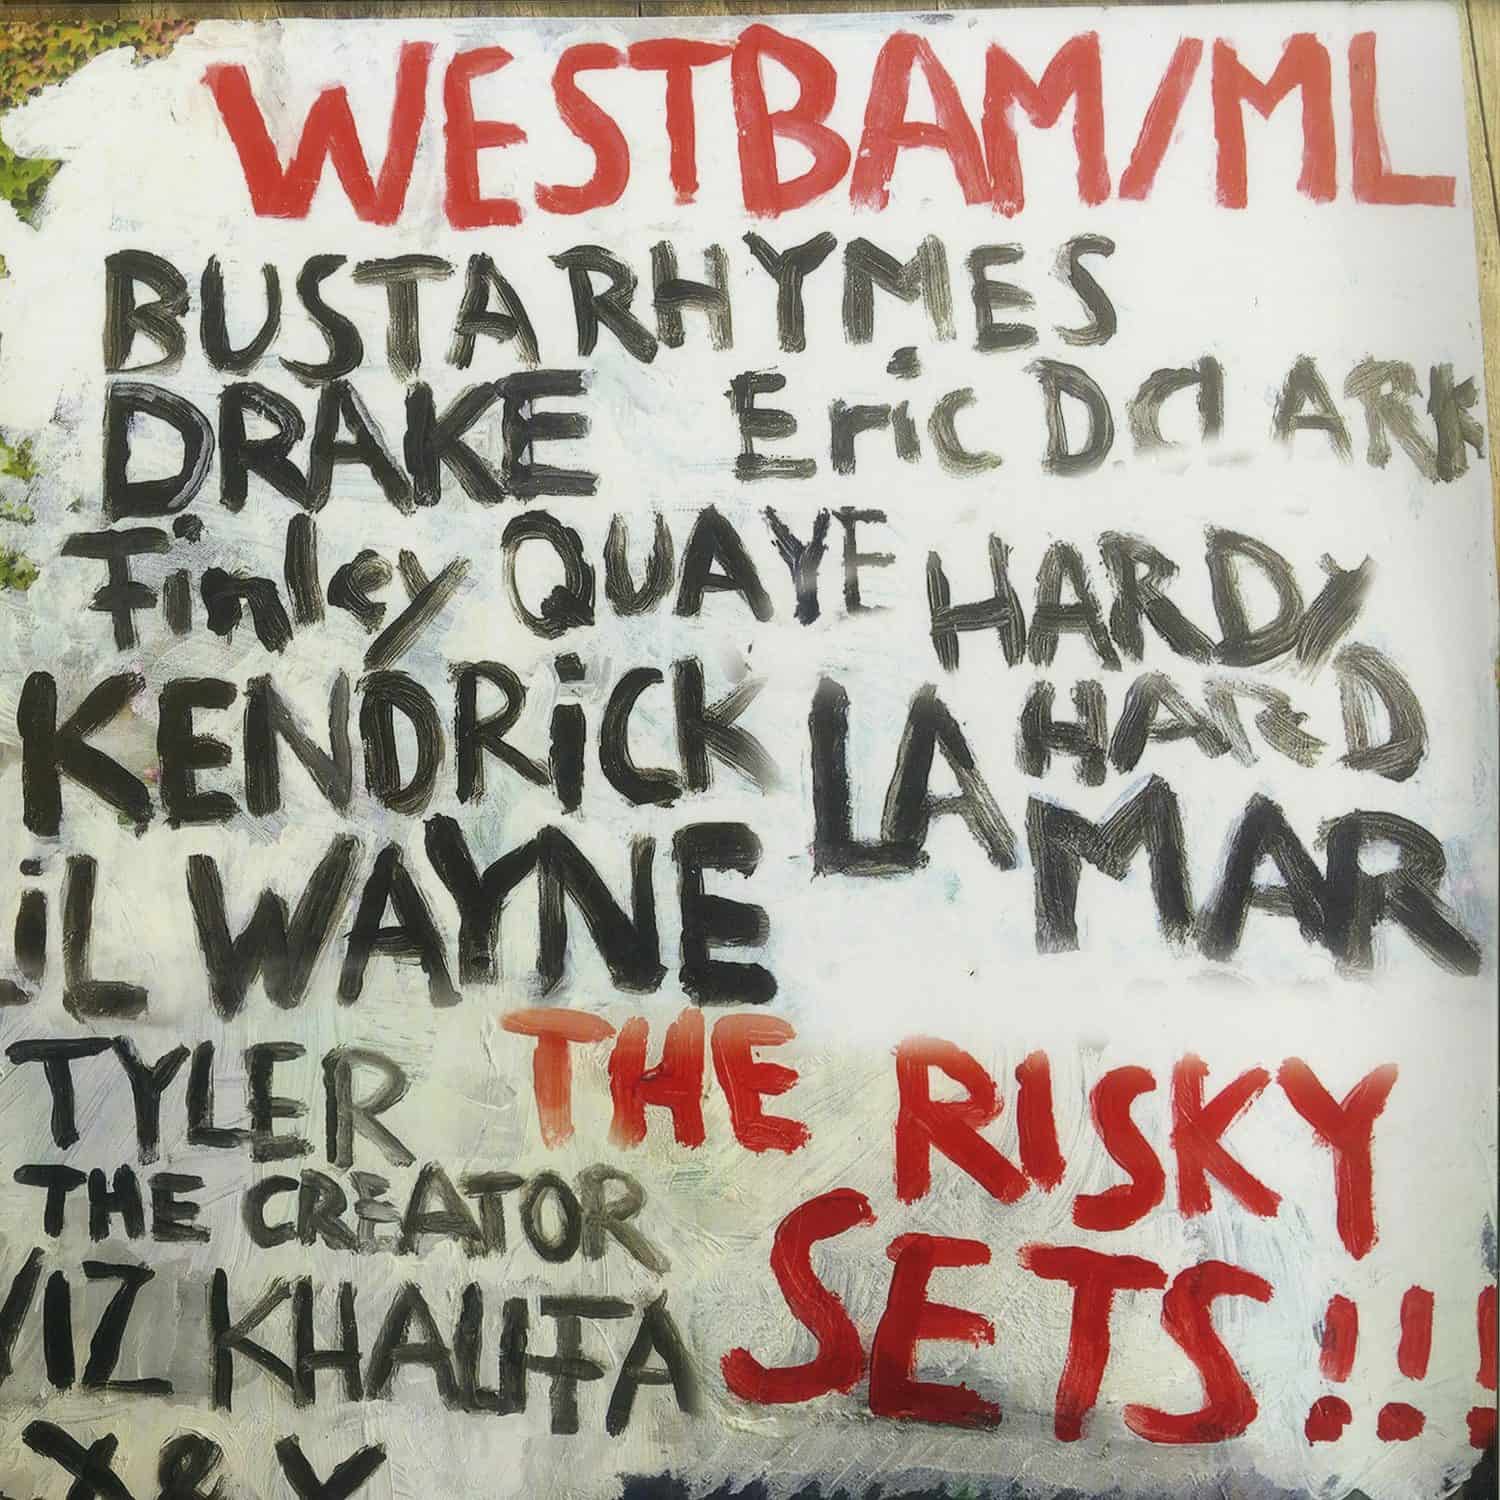 WESTBAM/ML
BUSTA RHYMES
DRAKE Eric D.ClARK
Finley QUAYE HARDY
HARD
KENDRiCK LAMAR
iL WAYNE
TYLER
THE CREATOR
THE RISKY
SETS!!!
IZ KHALIFA
X & Y